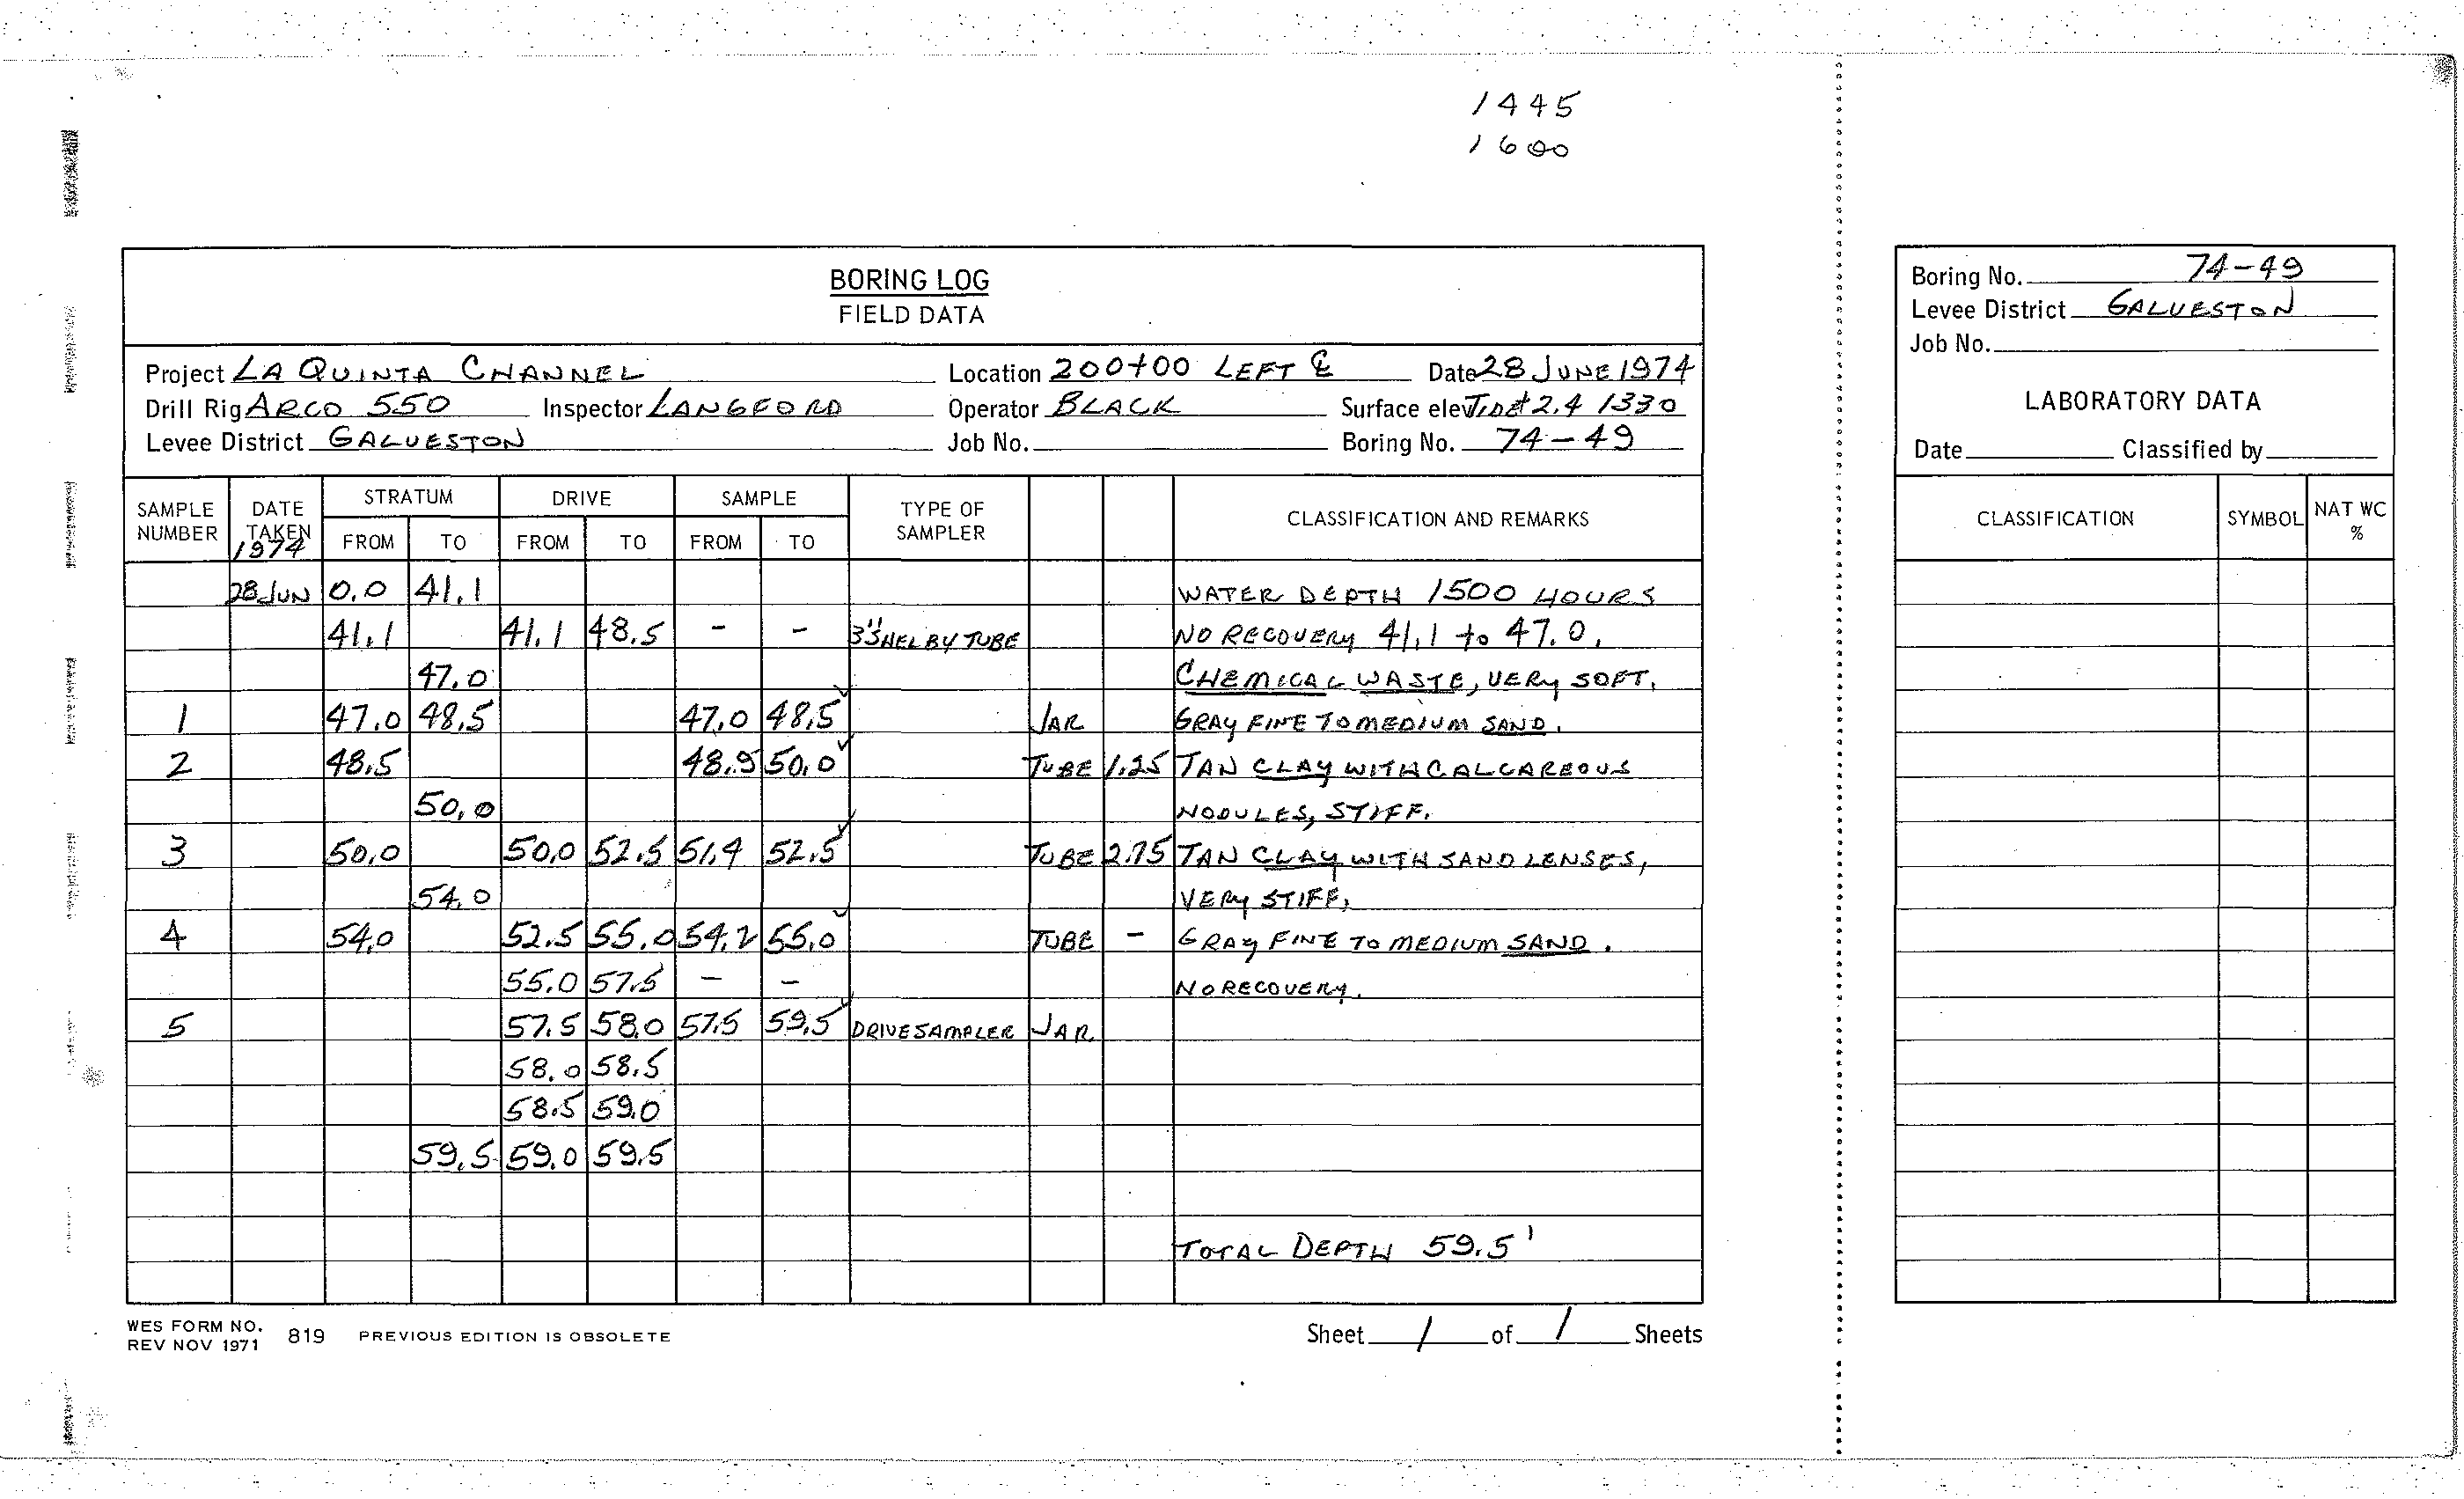 1445
1600
BORING LOG
FIELD DATA
Project LA QUINTA CHANNEL Location 200+00 LEFT ℄ Date 28 JUNE 1974
Drill Rig ARCO 550 Inspector LANGFORD Operator BLACK Surface elev. TIDE 2.4 1330
Levee District GALVESTON Job No. Boring No. 74-49
SAMPLE NUMBER DATE TAKEN 1974 STRATUM FROM TO DRIVE FROM TO SAMPLE FROM TO TYPE OF SAMPLER CLASSIFICATION AND REMARKS
28 JUN 0.0 41.1 WATER DEPTH 1500 HOURS
41.1 41.1 48.5 - - 3" SHELBY TUBE NO RECOVERY 41.1 to 47.0.
47.0 CHEMICAL WASTE, VERY SOFT.
1 47.0 48.5 47.0 48.5 JAR GRAY FINE TO MEDIUM SAND.
2 48.5 48.5 50.0 TUBE 1.25 TAN CLAY WITH CALCAREOUS
50.0 NODULES, STIFF.
3 50.0 50.0 52.5 51.4 52.5 TUBE 2.75 TAN CLAY WITH SAND LENSES,
54.0 VERY STIFF.
4 54.0 52.5 55.0 54.2 55.0 TUBE - GRAY FINE TO MEDIUM SAND.
55.0 57.5 - - NO RECOVERY.
5 57.5 58.0 57.5 59.5 DRIVE SAMPLER JAR
58.0 58.5
58.5 59.0
59.5 59.0 59.5
TOTAL DEPTH 59.5'
WES FORM NO. 819 PREVIOUS EDITION IS OBSOLETE
REV NOV 1971
Sheet 1 of 1 Sheets
Boring No. 74-49
Levee District GALVESTON
Job No.
LABORATORY DATA
Date Classified by
CLASSIFICATION SYMBOL NAT WC %